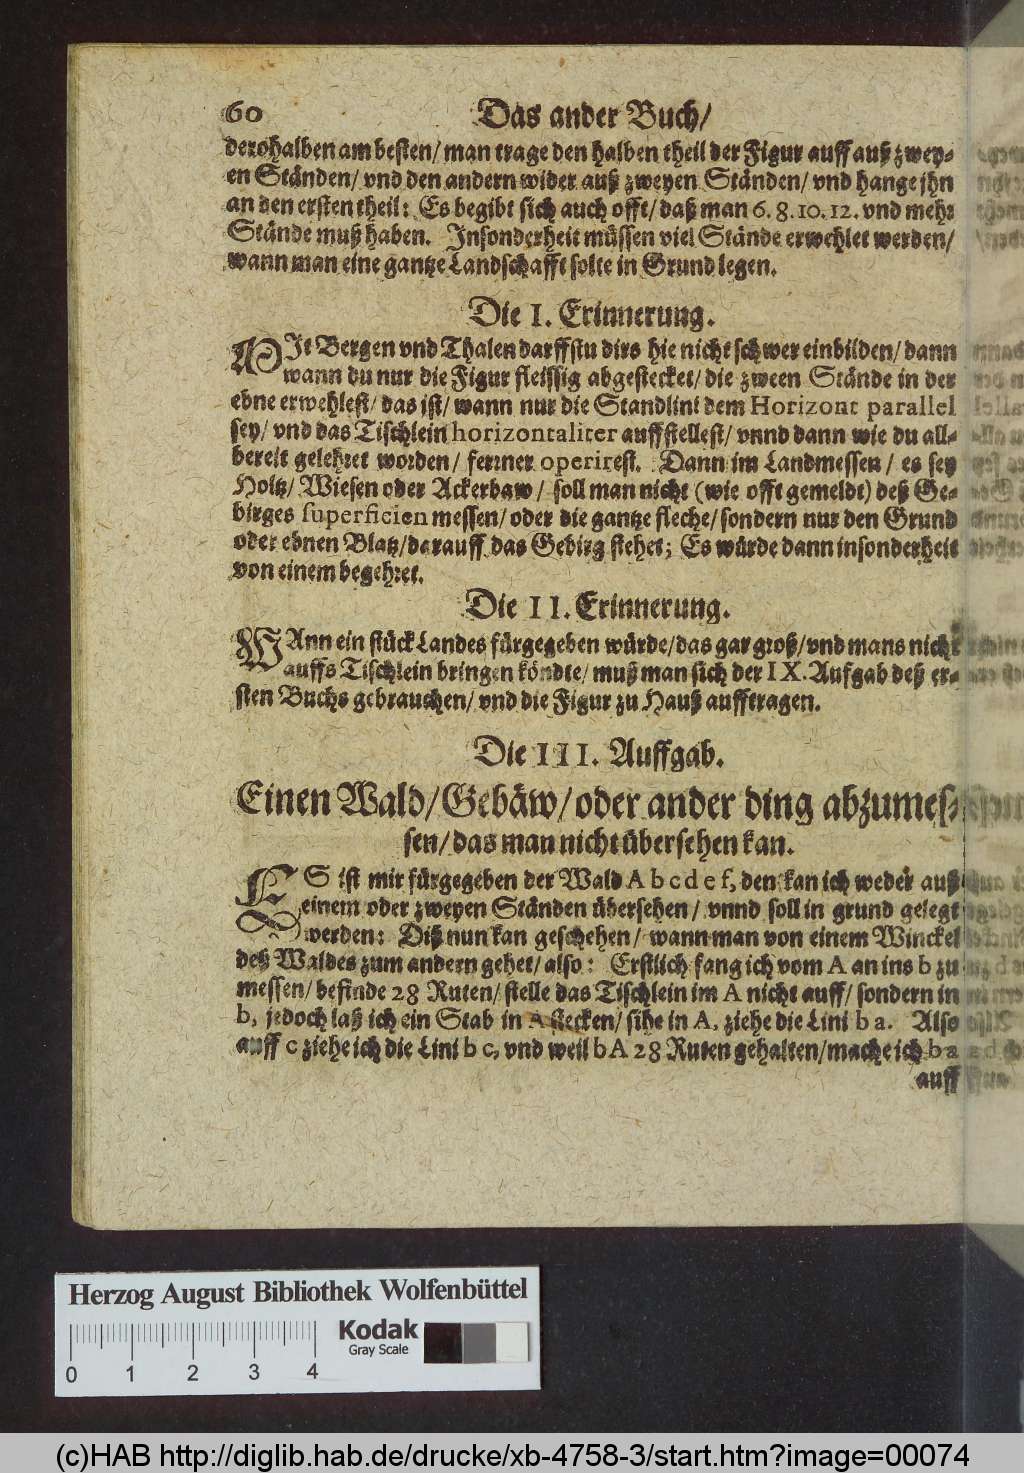 60 Das ander Buch/
derohalben am besten/ man trage den halben theil der Figur auff auß zwey-
en Ständen/ vnd den andern wider auß zweyen Ständen/ vnd hange jhn
an den ersten theil: Es begibt sich auch offt/ daß man 6. 8. 10. 12. vnd mehr
Stände muß haben. Insonderheit müssen viel Stände erwehlet werden/
wann man eine gantze Landschafft solte in Grund legen.
Die I. Erinnerung.
MIt Bergen vnd Thalen darffstu dirs hie nicht schwer einbilden/ dann
wann du nur die Figur fleissig abgestecket/ die zween Stände in der
ebne erwehlest/ das ist/ wann nur die Standlini dem Horizont parallel
sey/ vnd das Tischlein horizontaliter auffstellest/ vnnd dann wie du all-
bereit gelehret worden/ ferrner operirest. Dann im Landmessen/ es sey
Holtz/ Wiesen oder Ackerbaw/ soll man nicht (wie offt gemeldt) deß Ge-
birges superficien messen/ oder die gantze fleche/ sondern nur den Grund
oder ebnen Blatz/ darauff das Gebirg stehet; Es würde dann insonderheit
von einem begehret.
Die II. Erinnerung.
WAnn ein stück Landes fürgegeben würde/ das gar groß/ vnd mans nicht
auffs Tischlein bringen köndte/ muß man sich der IX. Aufgab deß er-
sten Buchs gebrauchen/ vnd die Figur zu Hauß aufftragen.
Die III. Auffgab.
Einen Wald/ Gebäw/ oder ander ding abzumes-
sen/ das man nicht übersehen kan.
ES ist mir fürgegeben der Wald A b c d e f, den kan ich weder auß
einem oder zweyen Ständen übersehen/ vnnd soll in grund gelegt
werden: Diß nun kan geschehen/ wann man von einem Winckel
deß Waldes zum andern gehet/ also: Erstlich fang ich vom A an ins b zu
messen/ befinde 28 Ruten/ stelle das Tischlein im A nicht auff/ sondern in
b, jedoch laß ich ein Stab in A stecken/ sihe in A, ziehe die Lini b a. Also
auff c ziehe ich die Lini b c, vnd weil b A 28 Ruten gehalten/ mache ich b a
auff
Herzog August Bibliothek Wolfenbüttel
Kodak
Gray Scale
0 1 2 3 4
(c)HAB http://diglib.hab.de/drucke/xb-4758-3/start.htm?image=00074